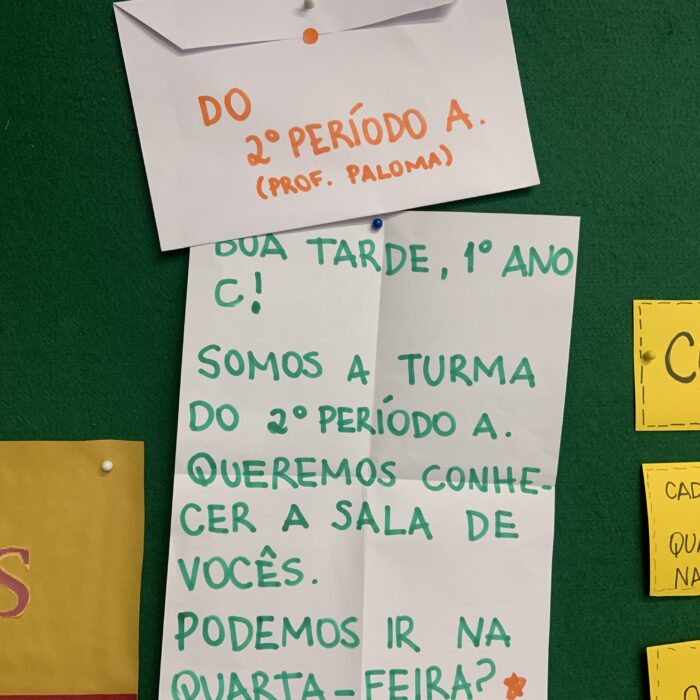 DO
2º PERÍODO A.
(PROF. PALOMA)
BOA TARDE, 1º ANO
C!
SOMOS A TURMA
DO 2º PERÍODO A.
QUEREMOS CONHE-
CER A SALA DE
VOCÊS.
PODEMOS IR NA
QUARTA-FEIRA?
S
C
CAD
QUA
NA